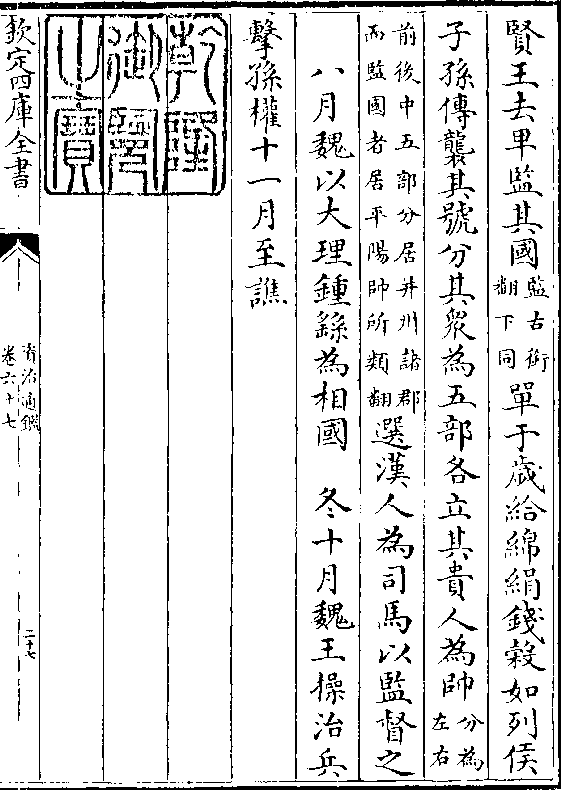 賢王去卑監其國監古銜翻下同單于歲給綿絹錢穀如列侯
子孫傳襲其號分其衆為五部各立其貴人為帥分為左右
前後中五部分居并州諸郡而監國者居平陽帥所類翻選漢人為司馬以監督之
八月魏以大理鍾繇為相國 冬十月魏王操治兵
擊孫權十一月至譙
乾隆御覽之寶
欽定四庫全書
資治通鑑
卷六十七
二十七